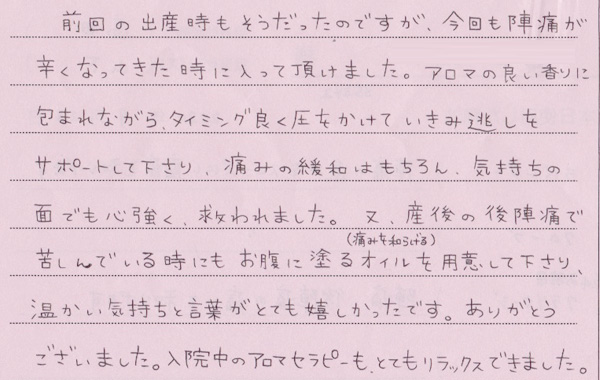 前回の出産時もそうだったのですが、今回も陣痛が
辛くなってきた時に入って頂けました。アロマの良い香りに
包まれながら、タイミング良く圧をかけていきみ逃しを
サポートして下さり、痛みの緩和はもちろん、気持ちの
面でも心強く、救われました。又、産後の後陣痛で
(痛みを和らげる)
苦しんでいる時にもお腹に塗るオイルを用意して下さり、
温かい気持ちと言葉がとても嬉しかったです。ありがとう
ございました。入院中のアロマセラピーも、とてもリラックスできました。